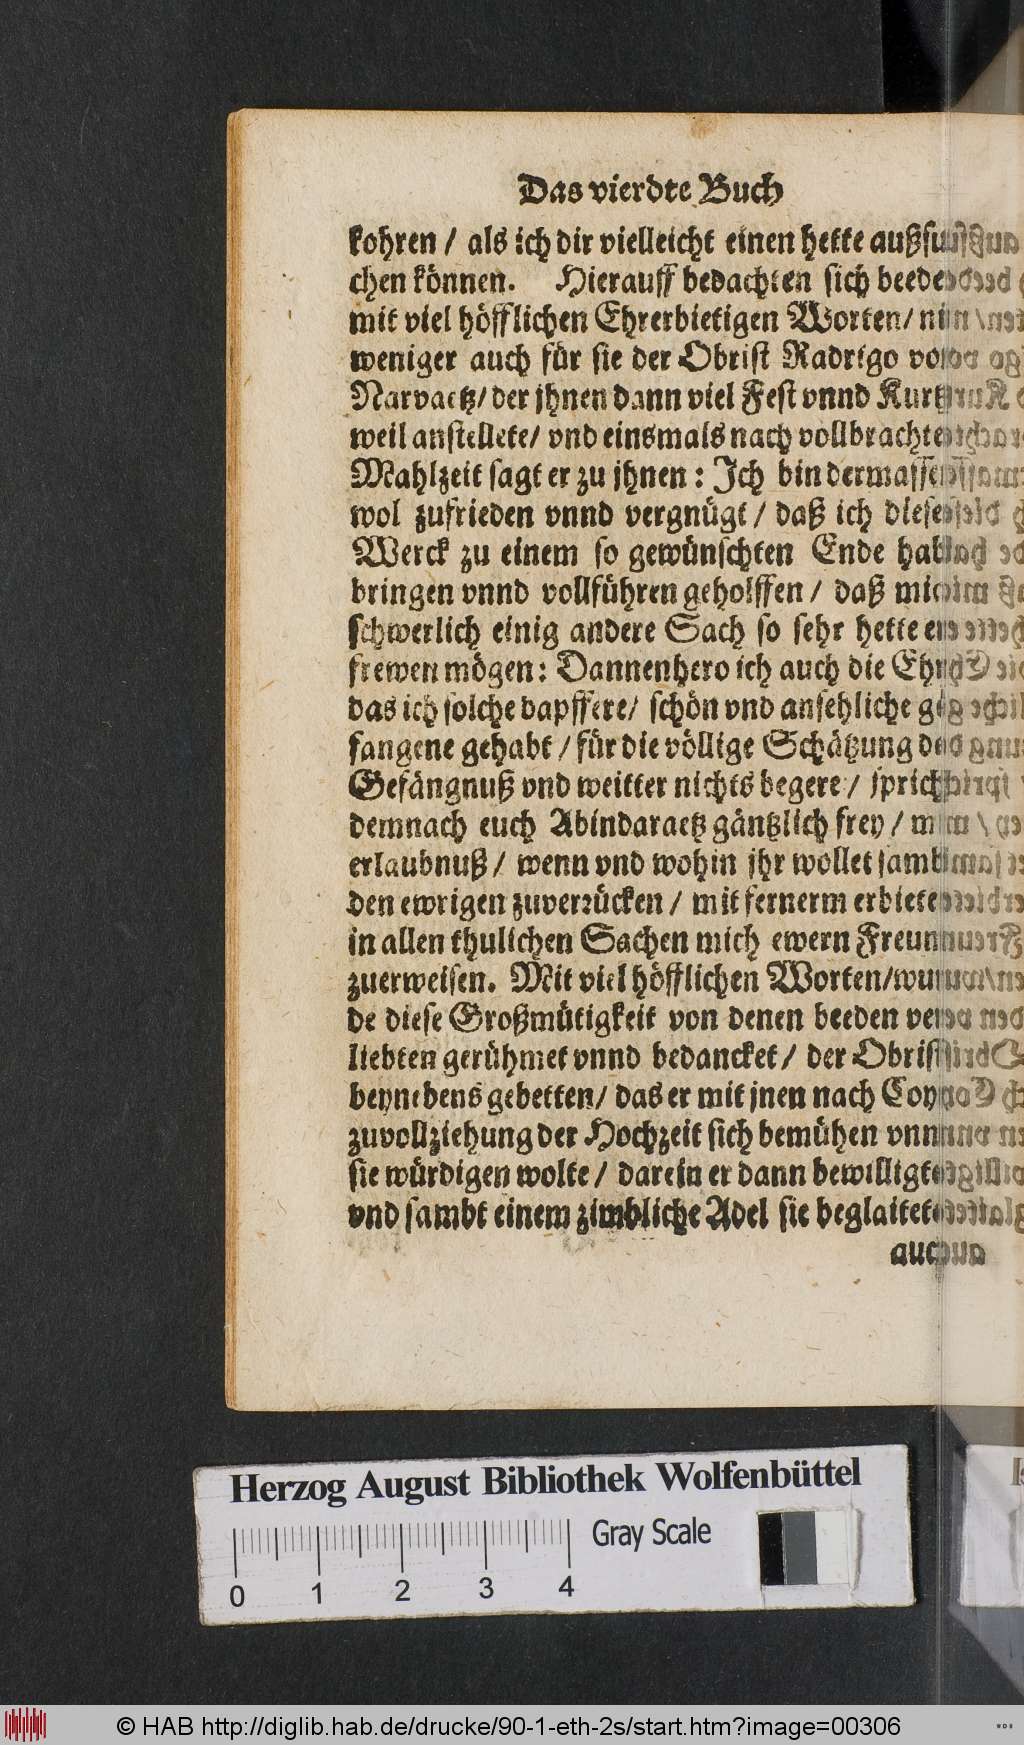 Das vierdte Buch
kohren / als ich dir vielleicht einen hette außsu
chen können. Hierauff bedachten sich beede
mit viel höfflichen Ehrerbietigen Worten/ nin
weniger auch für sie der Obrist Radrigo vo
Narvaetz/ der jhnen dann viel Fest vnnd Kurtz
weil anstellete/ vnd einsmals nach vollbrachte
Mahlzeit sagt er zu jhnen : Ich bin dermassen
wol zufrieden vnnd vergnügt / daß ich dieses
Werck zu einem so gewünschten Ende hab
bringen vnnd vollführen geholffen / daß mich
schwerlich einig andere Sach so sehr hette er
frewen mögen : Dannenhero ich auch die Ehr
das ich solche dapffere/ schön vnd ansehliche ge
fangene gehabt / für die völlige Schätzung des
Gefängnuß vnd weitter nichts begere / sprich
demnach euch Abindaraetz gäntzlich frey / m
erlaubnuß / wenn vnd wohin jhr wollet sambt
den ewrigen zuverrücken / mit fernerm erbieten
in allen thulichen Sachen mich ewern Freun
zuerweisen. Mit viel höfflichen Worten/wur
de diese Großmütigkeit von denen beeden ver
liebten gerühmet vnnd bedancket / der Obrist
beynebens gebetten/ das er mit jnen nach Coyn
zuvollziehung der Hochzeit sich bemühen vnn
sie würdigen wolte / darein er dann bewilligt
vnd sambt einem zimbliche Adel sie beglaitet
auch
Herzog August Bibliothek Wolfenbüttel
Gray Scale
0 1 2 3 4
© HAB http://diglib.hab.de/drucke/90-1-eth-2s/start.htm?image=00306